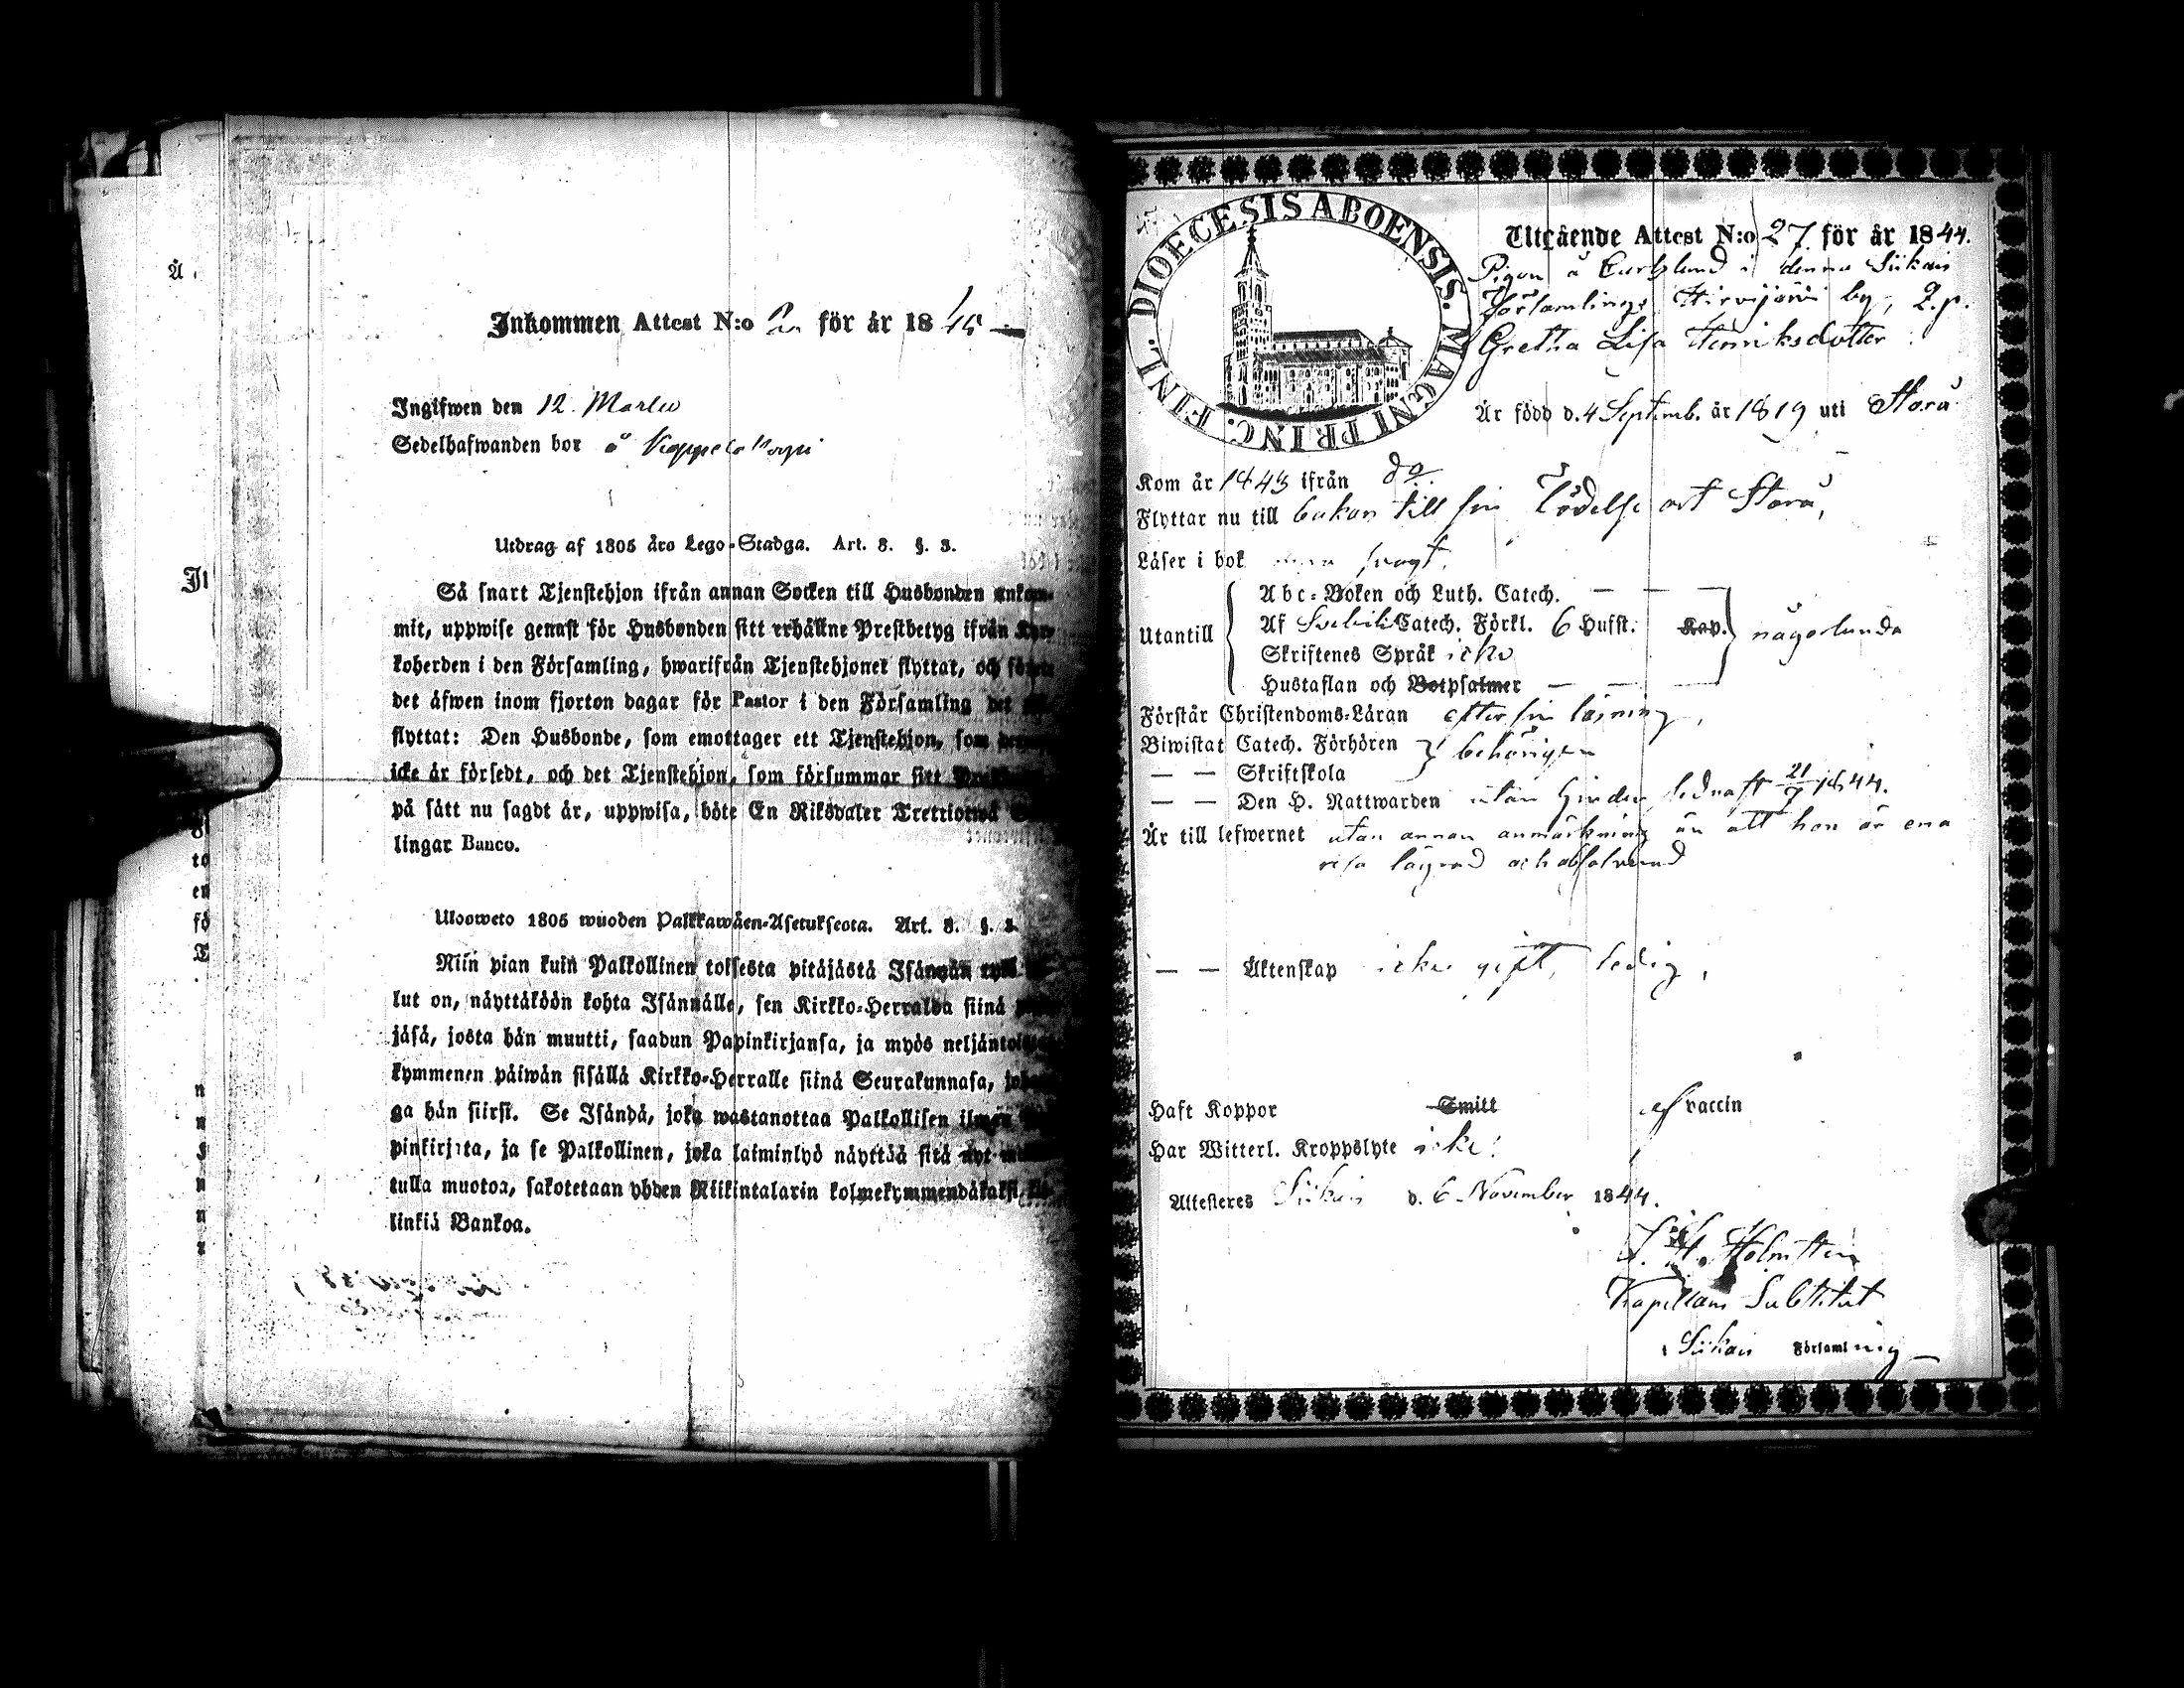 Inkommen Attest N:o för år 1845
Ingifwen den 12 Martii
Sedelhafwanden bor å
Utdrag af 1805 års Lego-Stadga. Art. 8. §. 3.
Så snart Tjenstehjon ifrån annan Socken till Husbonden ankom-
mit, uppwise genast för Husbonden sitt erhållne Prestbetyg ifrån Kyr-
koherden i den Församling, hwarifrån Tjenstehjonet flyttat, och
det äfwen inom fjorton dagar för Pastor i den Församling det
flyttat: Den Husbonde, som emottager ett Tjenstehjon, som
icke är försedt, och det Tjenstehjon, som försummar sitt
på sätt nu sagdt är, uppwisa, böte En Riksdaler Trettiotwå
lingar Banco.
Ulosweto 1805 wuoden Palkkawäen-Asetuksesta. Art. 8. §. 3.
Niin pian kuin Palkollinen toisesta pitäjästä Isännän
lut on, näyttäköön kohta Isännälle, sen Kirkko-Herralda siinä
jäsä, josta hän muutti, saadun Papinkirjansa, ja myös neljäntoista
kymmenen päiwän sisällä Kirkko-Herralle siinä Seurakunnasa,
ga hän siirsi. Se Isändä, joka wastanottaa Palkollisen ilman
pinkirjata, ja se Palkollinen, joka laiminlyö näyttää sitä nyt
tulla muotoa, sakotetaan yhden Riikintalarin kolmekymmendäkaksi
linkiä Bankoa.
DIOECESIS ABOENSIS. MAGNI PRINC. FINL.
Utgående Attest N:o 27 för år 1844.
Pigan å Carlslund i denna Siikais
Församlings Hirvijärvi by, Q.p.
Gretha Lisa Henriksdotter
Är född d. 4 Septemb. år 1819 uti Storå
Kom år 1843 ifrån do
Flyttar nu till bakan till sin Födelse ort Storå,
Läser i bok svagt.
Utantill
Abc-Boken och Luth. Catech. — — —
Af Svebilii Catech. Förkl. 6 Hufst. Kap. någorlunda
Skriftenes Språk icke
Hustaflan och Botpsalmer — — —
Förstår Christendoms-Läran efter sin läsning,
Biwistat Catech. Förhören behörigen
— — Skriftskola
— — Den H. Nattwarden utan hinder sednast 21/7 1844.
Är till lefwernet utan annan anmärkning än att hon är ena
resa lägrad och absolverad
— — Äktenskap icke gift, ledig,
Haft Koppor Smitt af vaccin
Har Witterl. Kroppslyte icke.
Attesteres Siikais d. 6 November 1844.
Holmsten
Kapellans Substitut
i Siikais Församling